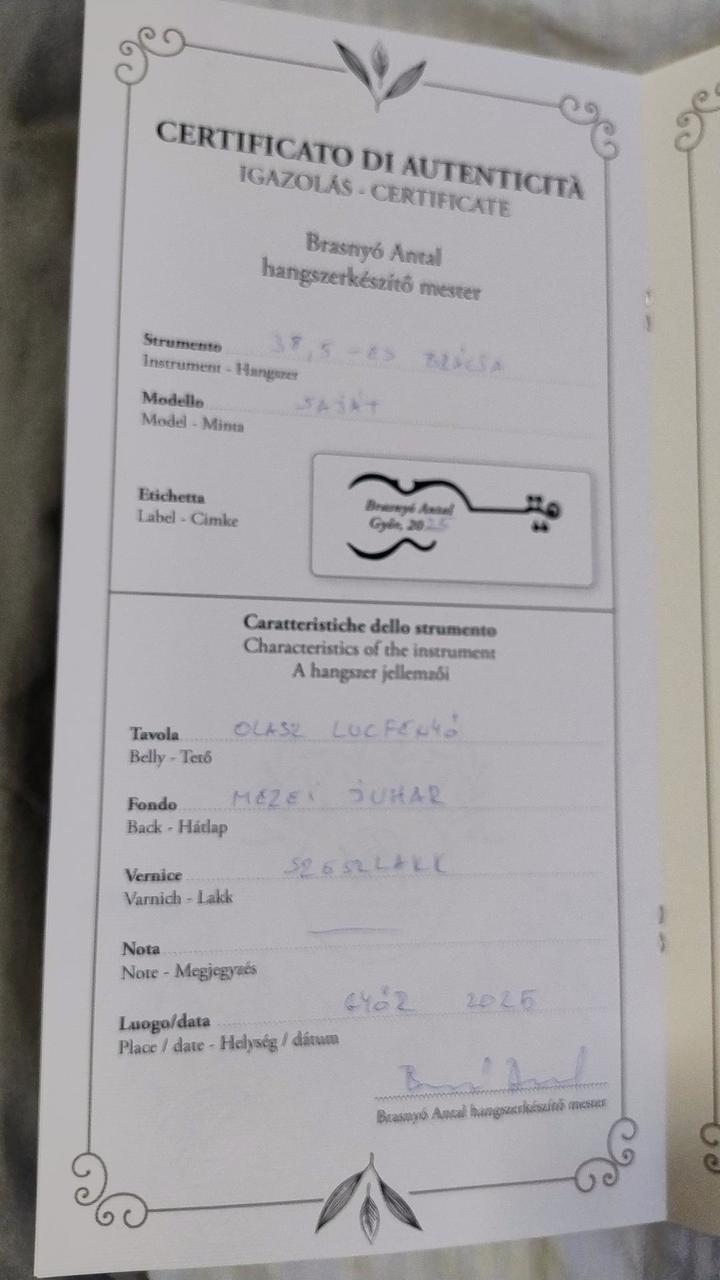 CERTIFICATO DI AUTENTICITÀ
IGAZOLÁS - CERTIFICATE
Brasnyó Antal
hangszerkészítő mester
Strumento 38,5 -ES BRÁCSA
Instrument - Hangszer
Modello SAJÁT
Model - Minta
Etichetta
Label - Cimke
Brasnyó Antal
Győr, 2025
Caratteristiche dello strumento
Characteristics of the instrument
A hangszer jellemzői
Tavola OLASZ LUCFENYŐ
Belly - Tető
Fondo MEZEI JUHAR
Back - Hátlap
Vernice SZESZLAKK
Varnich - Lakk
Nota
Note - Megjegyzés
Luogo/data GYŐR 2025
Place / date - Helység / dátum
Brasnyó Antal hangszerkészítő mester